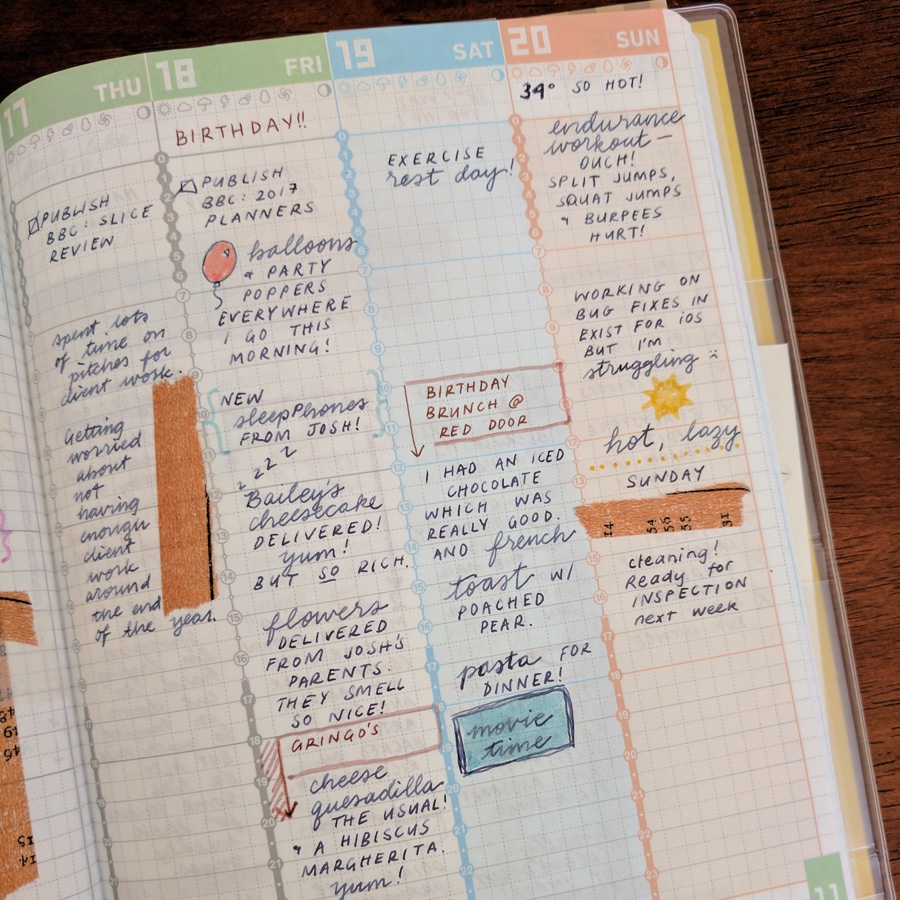 17 THU
PUBLISH
BBC: SLICE
REVIEW
spent lots
of time on
pitches for
client work.
Getting
worried
about
not
having
enough
client
work
around
the end
of the year.
18 FRI
BIRTHDAY!!
PUBLISH
BBC: 2017
PLANNERS
balloons
& PARTY
POPPERS
EVERYWHERE
I GO THIS
MORNING!
NEW
sleepPhones
FROM JOSH!
z z z z
Bailey's
cheesecake
DELIVERED!
yum!
BUT SO RICH.
flowers
DELIVERED
FROM JOSH'S
PARENTS.
THEY SMELL
SO NICE!
GRINGO'S
cheese
quesadilla
THE USUAL!
& A HIBISCUS
MARGHERITA.
yum!
19 SAT
EXERCISE
rest day!
BIRTHDAY
BRUNCH @
RED DOOR
I HAD AN ICED
CHOCOLATE
WHICH WAS
REALLY GOOD.
AND french
toast W/
POACHED
PEAR.
pasta FOR
DINNER!
movie
time
20 SUN
34° SO HOT!
endurance
workout –
OUCH!
SPLIT JUMPS,
SQUAT JUMPS
& BURPEES
HURT!
WORKING ON
BUG FIXES IN
EXIST FOR iOS
BUT I'M
struggling
hot, lazy
SUNDAY
14 54 56 55 31
cleaning!
Ready for
INSPECTION
next week
11